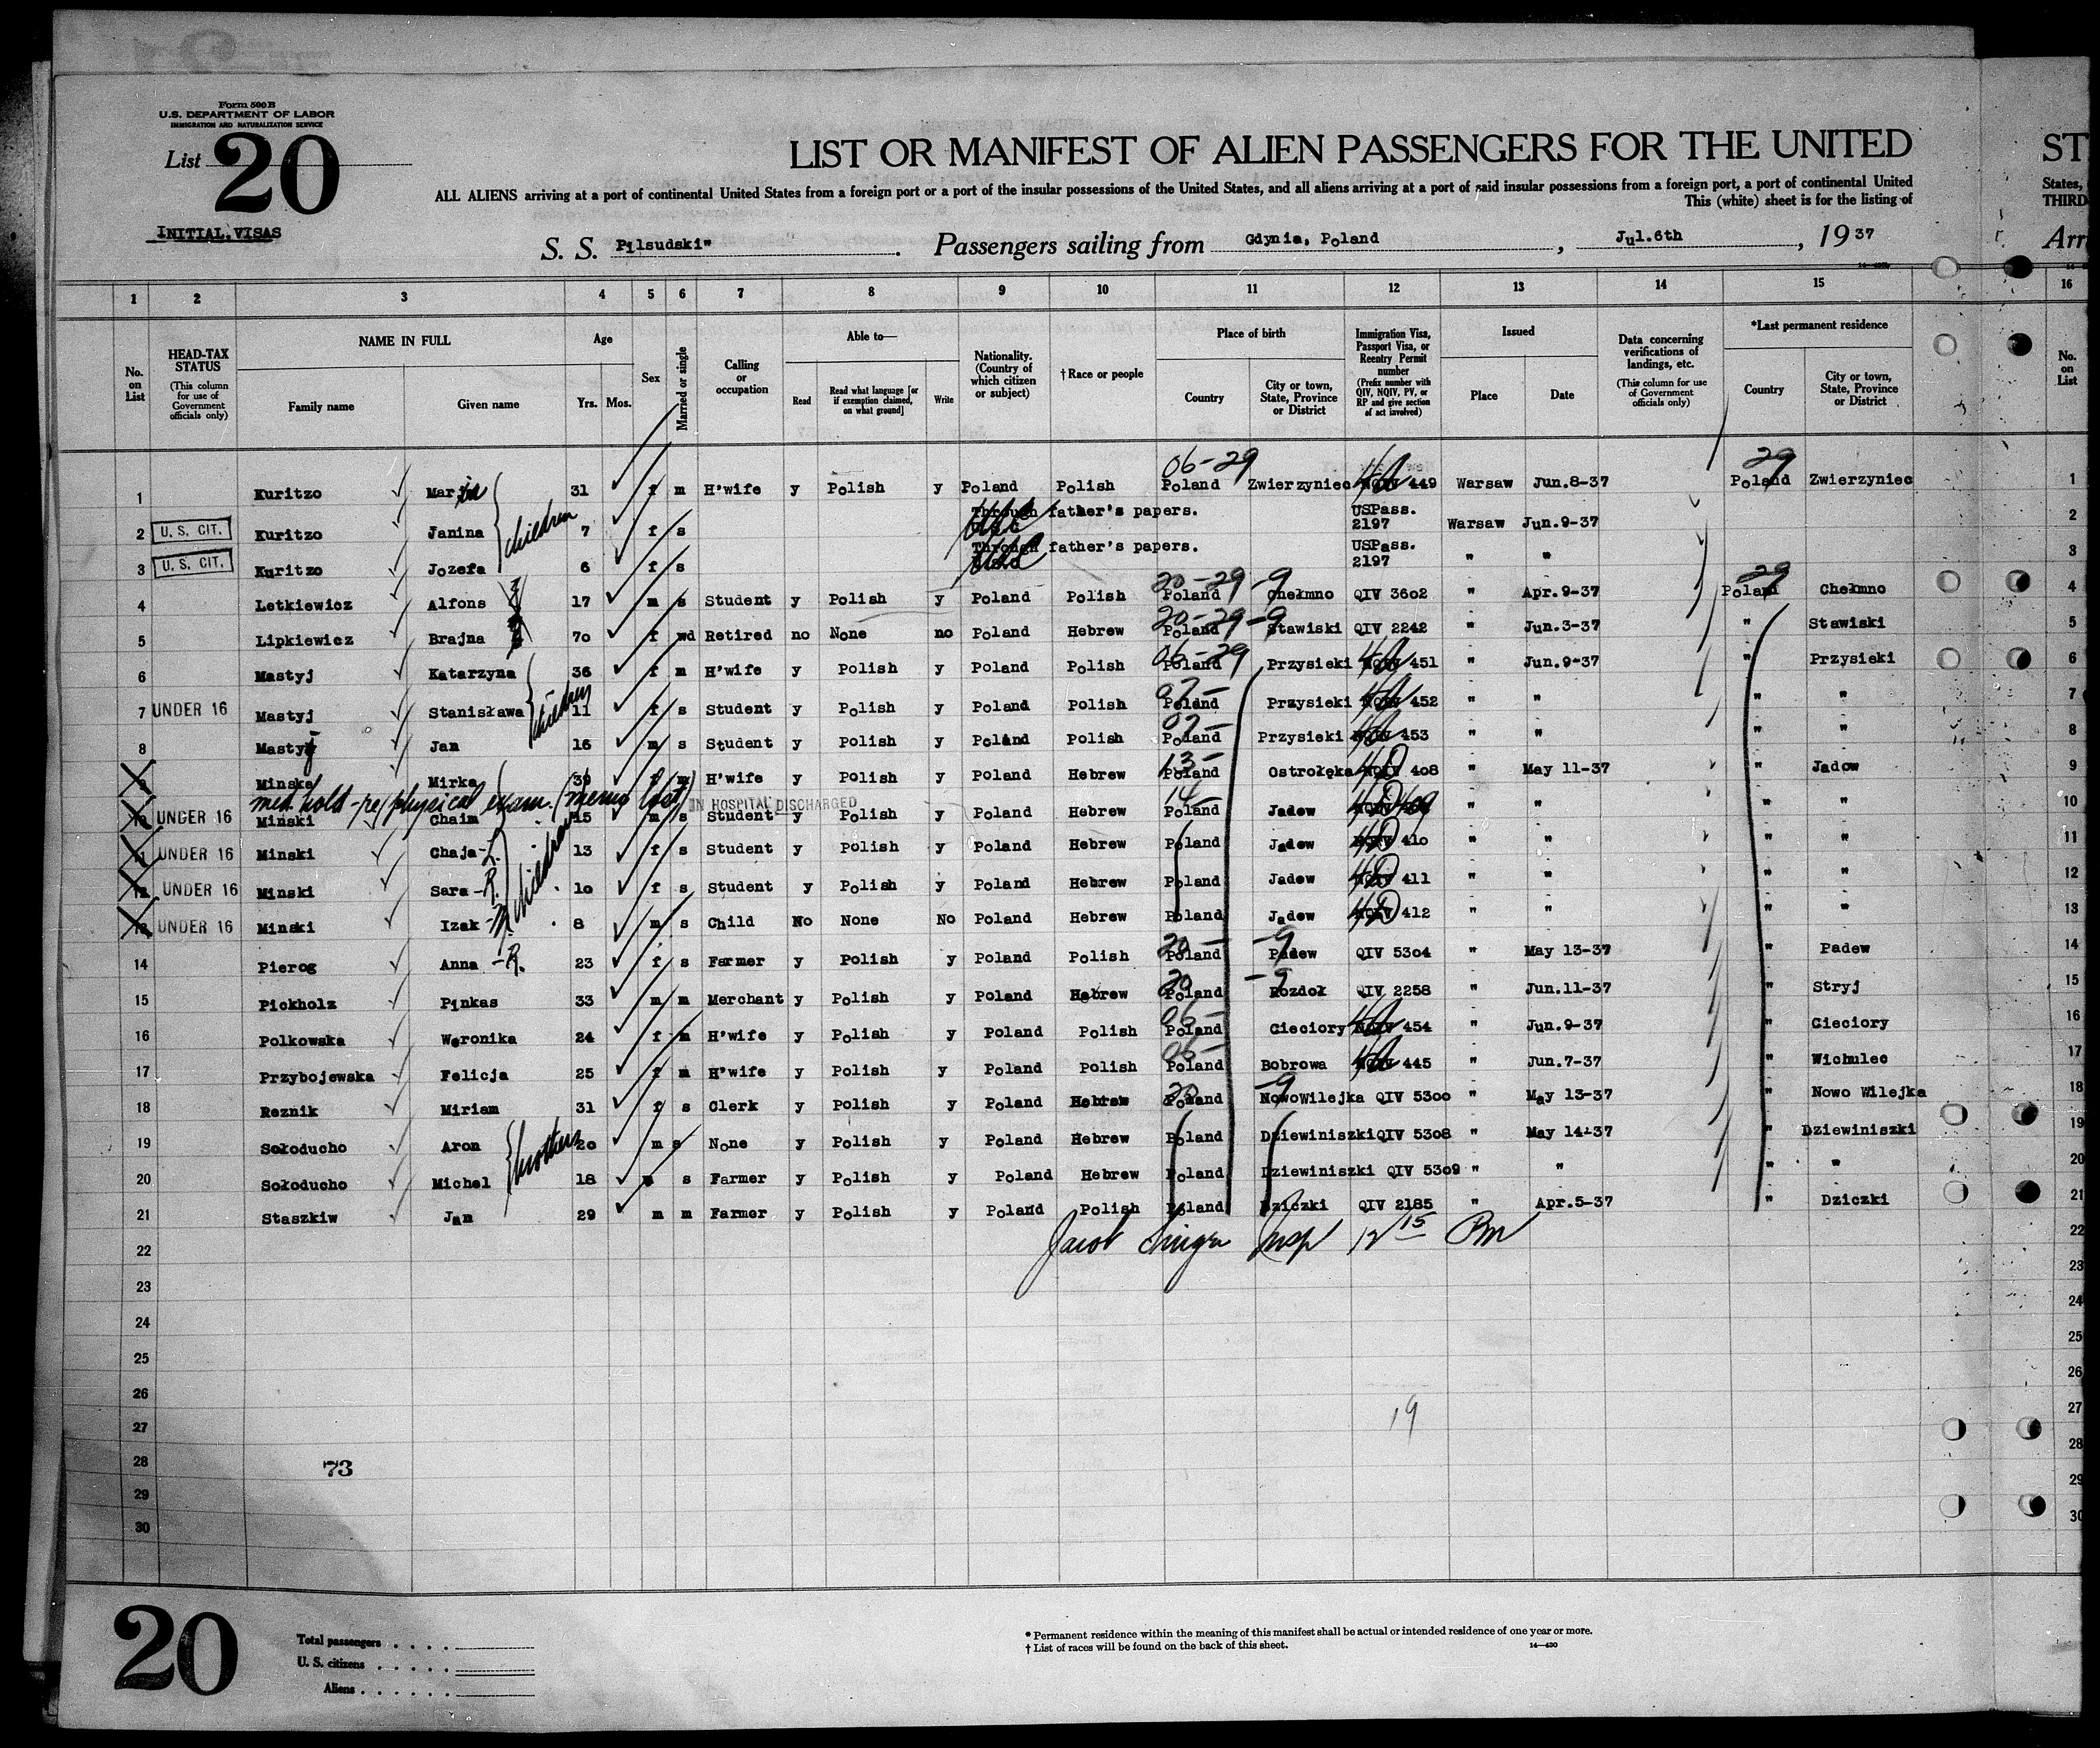 Form 500 B
U.S. DEPARTMENT OF LABOR
IMMIGRATION AND NATURALIZATION SERVICE
List 20
INITIAL VISAS
LIST OR MANIFEST OF ALIEN PASSENGERS FOR THE UNITED
ST
ALL ALIENS arriving at a port of continental United States from a foreign port or a port of the insular possessions of the United States, and all aliens arriving at a port of said insular possessions from a foreign port, a port of continental United
States,
This (white) sheet is for the listing of
THIRD
S. S. Pilsudski" . Passengers sailing from Gdynia, Poland , Jul.6th , 19 37
Arr
1 2 3 4 5 6 7 8 9 10 11 12 13 14 15 16
No. on List
HEAD-TAX STATUS (This column for use of Government officials only)
NAME IN FULL Family name Given name
Age Yrs. Mos.
Sex
Married or single
Calling or occupation
Able to— Read Read what language [or if exemption claimed, on what ground] Write
Nationality. (Country of which citizen or subject)
†Race or people
Place of birth Country City or town, State, Province or District
Immigration Visa, Passport Visa, or Reentry Permit number (Prefix number with QIV, NQIV, PV, or RP and give section of act involved)
Issued Place Date
Data concerning verifications of landings, etc. (This column for use of Government officials only)
*Last permanent residence Country City or town, State, Province or District
No. on List
06-29 29
1 Kuritzo Maria 31 f m H'wife y Polish y Poland Polish Poland Zwierzyniec 449 Warsaw Jun.8-37 Poland Zwierzyniec 1
Through father's papers. USPass.
2 U. S. CIT. Kuritzo Janina children 7 f s 2197 Warsaw Jun.9-37 2
Through father's papers. USPass.
3 U. S. CIT. Kuritzo Jozefa 6 f s 2197 " " 3
20-29 -9 29
4 Letkiewicz Alfons 17 m s Student y Polish y Poland Polish Poland Chełmno QIV 3602 " Apr.9-37 Poland Chełmno 4
20-29-9
5 Lipkiewicz Brajna 70 f wd Retired no None no Poland Hebrew Poland Stawiski QIV 2242 " Jun.3-37 " Stawiski 5
06-29
6 Mastyj Katarzyna 36 f m H'wife y Polish y Poland Polish Poland Przysieki 451 " Jun.9-37 " Przysieki 6
07-
7 UNDER 16 Mastyj Stanisława children 11 f s Student y Polish y Poland Polish Poland Przysieki 452 " " " " 7
07-
8 Mastyj Jan 16 m s Student y Polish y Poland Polish Poland Przysieki 453 " " " " 8
13-
9 Minska Mirka 39 f m H'wife y Polish y Poland Hebrew Poland Ostrołęka 408 " May 11-37 " Jadow 9
med hold - re/physical exam. (memo lost) IN HOSPITAL DISCHARGED
14-
10 UNDER 16 Minski Chaim 15 m s Student y Polish y Poland Hebrew Poland Jadow 409 " " " " 10
11 UNDER 16 Minski Chaja-L. children 13 f s Student y Polish y Poland Hebrew Poland Jadow 410 " " " " 11
12 UNDER 16 Minski Sara-R. 10 f s Student y Polish y Poland Hebrew Poland Jadow 411 " " " " 12
13 UNDER 16 Minski Izak-M. 8 m s Child No None No Poland Hebrew Poland Jadow 412 " " " " 13
20- -9
14 Pierog Anna -R. 23 f s Farmer y Polish y Poland Polish Poland Padew QIV 5304 " May 13-37 " Padew 14
20 -9
15 Pickholz Pinkas 33 m m Merchant y Polish y Poland Hebrew Poland Rozdoł QIV 2258 " Jun.11-37 " Stryj 15
06-
16 Polkowska Weronika 24 f m H'wife y Polish y Poland Polish Poland Cieciory 454 " Jun.9-37 " Cieciory 16
06-
17 Przybojewska Felicja 25 f m H'wife y Polish y Poland Polish Poland Bobrowa 445 " Jun.7-37 " Wichulec 17
20 -9
18 Reznik Miriam 31 f s Clerk y Polish y Poland Hebrew Poland NowoWilejka QIV 5300 " May 13-37 " Nowo Wilejka 18
19 Sołoducho Aron brothers 20 m s None y Polish y Poland Hebrew Poland Dziewiniszki QIV 5308 " May 14-37 " Dziewiniszki 19
20 Sołoducho Michel 18 m s Farmer y Polish y Poland Hebrew Poland Dziewiniszki QIV 5309 " " " " 20
21 Staszkiw Jan 29 m m Farmer y Polish y Poland Polish Poland Dziczki QIV 2185 " Apr.5-37 " Dziczki 21
22 Jacob Insp 12 15 Pm 22
23 23
24 24
25 25
26 26
27 19 27
28 73 28
29 29
30 30
20
Total passengers . . . .
U. S. citizens . . . . .
Aliens . . . . . .
* Permanent residence within the meaning of this manifest shall be actual or intended residence of one year or more.
† List of races will be found on the back of this sheet. 14—430